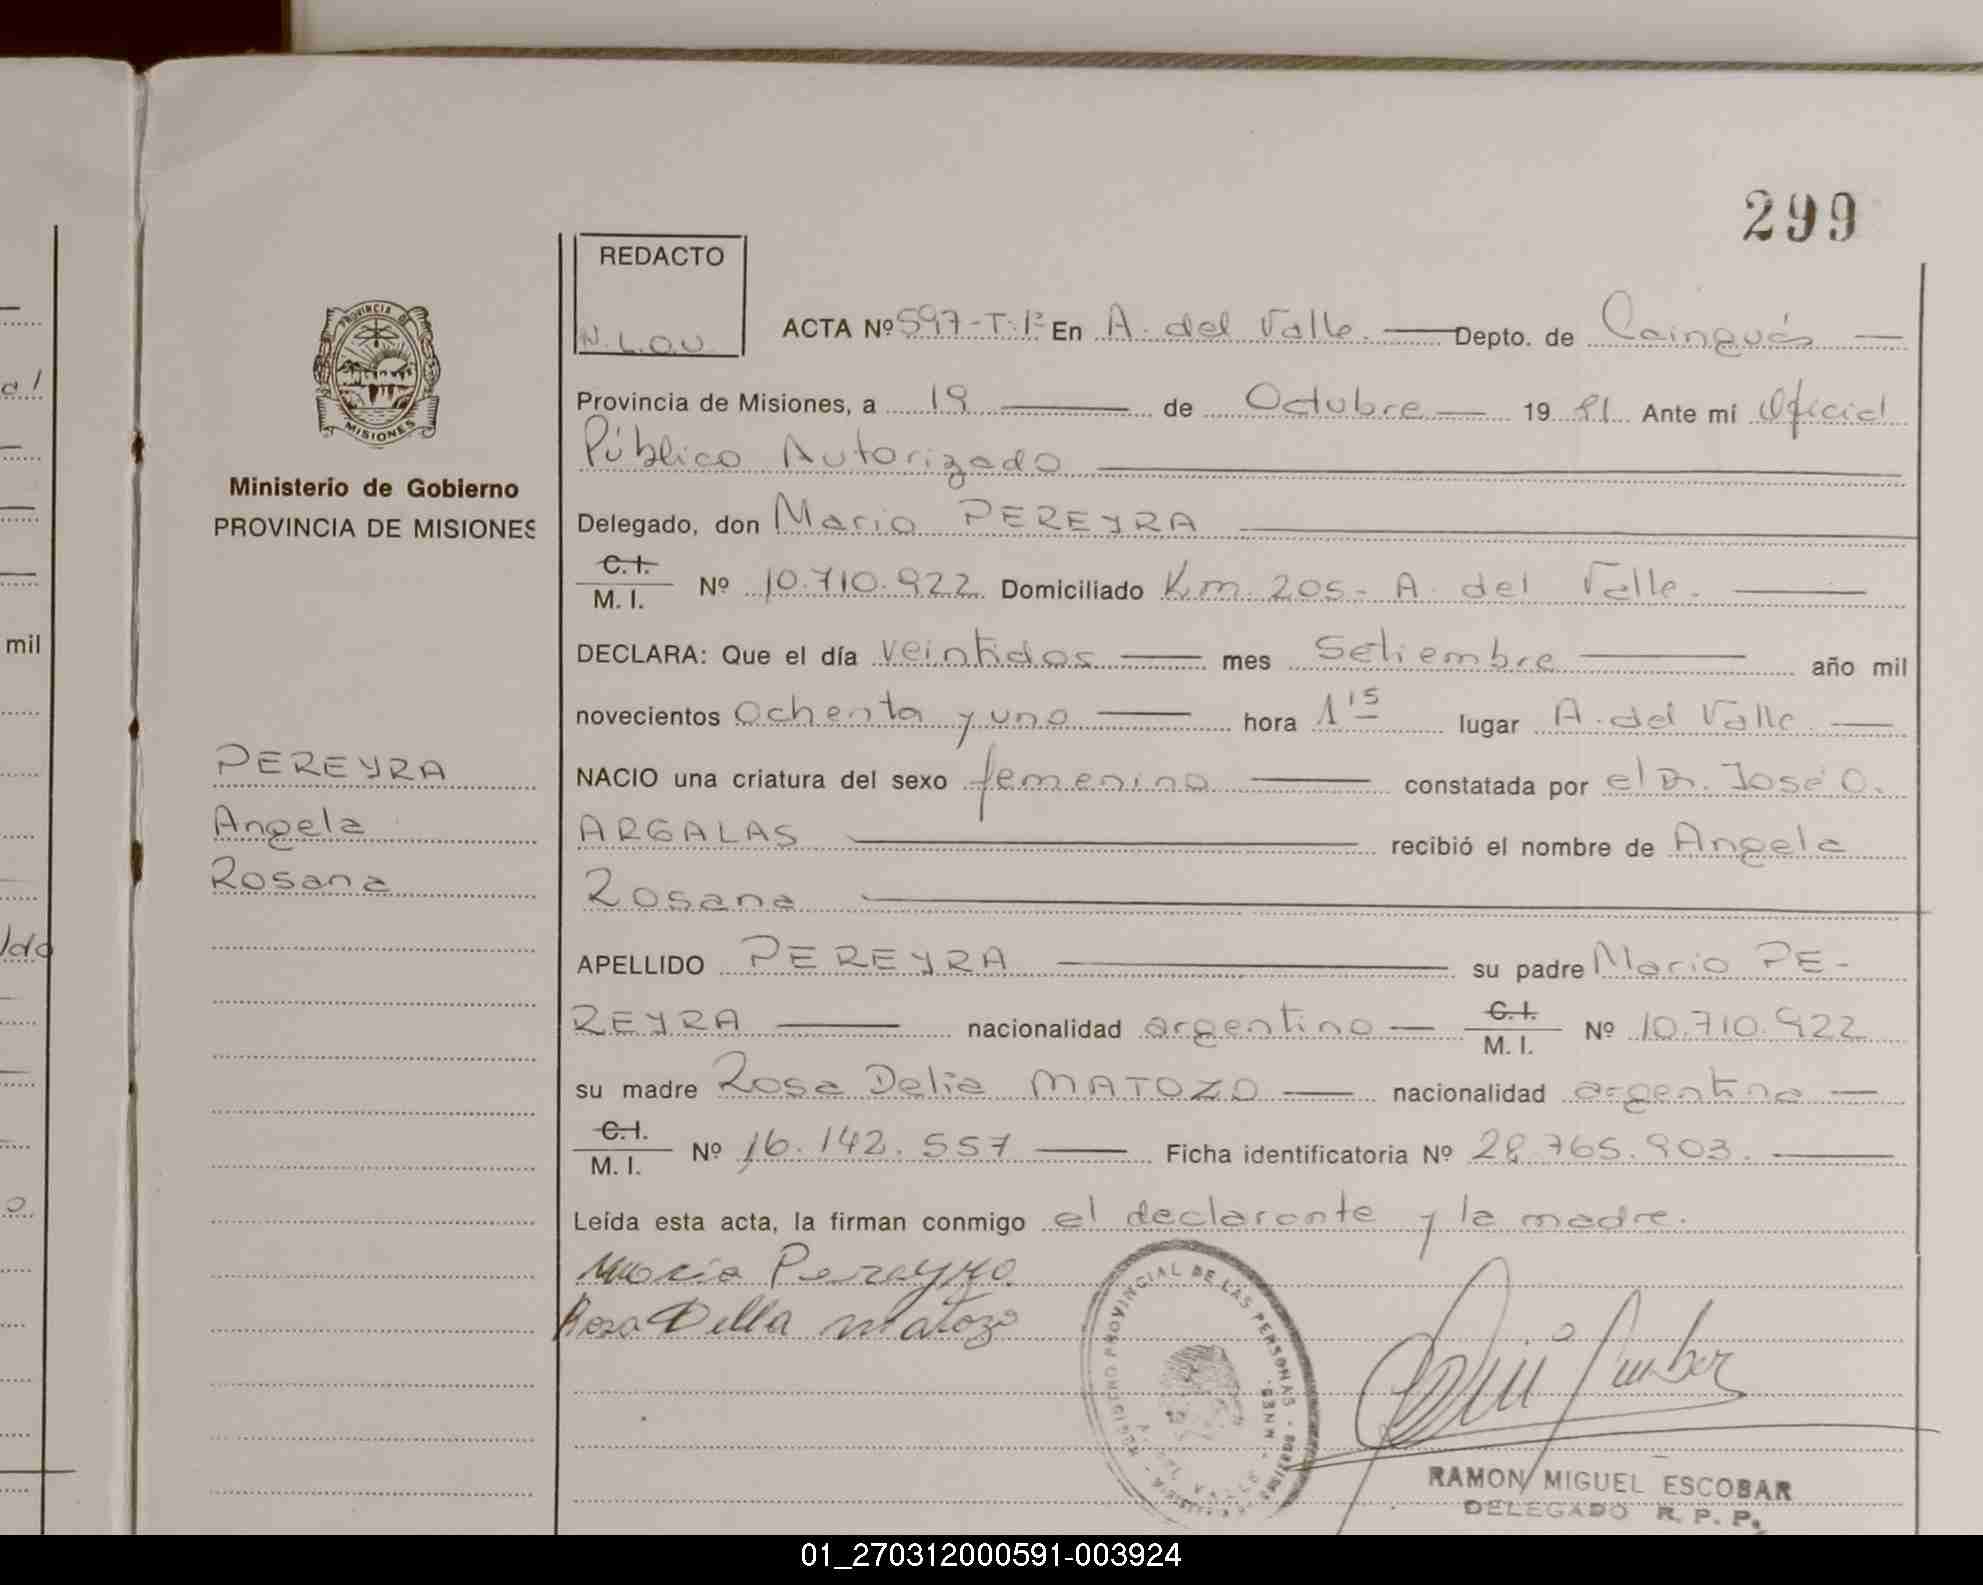 299
REDACTO
N.L.O.V.
ACTA Nº 597-T:1º En A. del Valle. Depto. de Cainguás
Provincia de Misiones, a 19 de Octubre 19 81 Ante mi Oficial
Público Autorizado
Delegado, don Mario PEREYRA
C.I.
M. I. Nº 10.710.922 Domiciliado Km. 205- A. del Valle.
DECLARA: Que el día veintidos mes Setiembre año mil
novecientos Ochenta y uno hora 1 15 lugar A. del Valle
NACIO una criatura del sexo femenino constatada por el Dr. José O.
ARGALAS recibió el nombre de Angela
Rosana
APELLIDO PEREYRA su padre Mario PE-
REYRA nacionalidad argentino C.I. M. I. Nº 10.710.922
su madre Rosa Delia MATOZO nacionalidad argentina
C.I.
M. I. Nº 16.142.557 Ficha identificatoria Nº 28.765.903.
Leída esta acta, la firman conmigo el declarante y la madre.
Mario Pereyra
Rosa Della matozo
REGISTRO PROVINCIAL DE LAS PERSONAS - MNES
RAMON MIGUEL ESCOBAR
DELEGADO R. P. P.
PROVINCIA DE
MISIONES
Ministerio de Gobierno
PROVINCIA DE MISIONES
PEREYRA
Angela
Rosana
mil
01_270312000591-003924